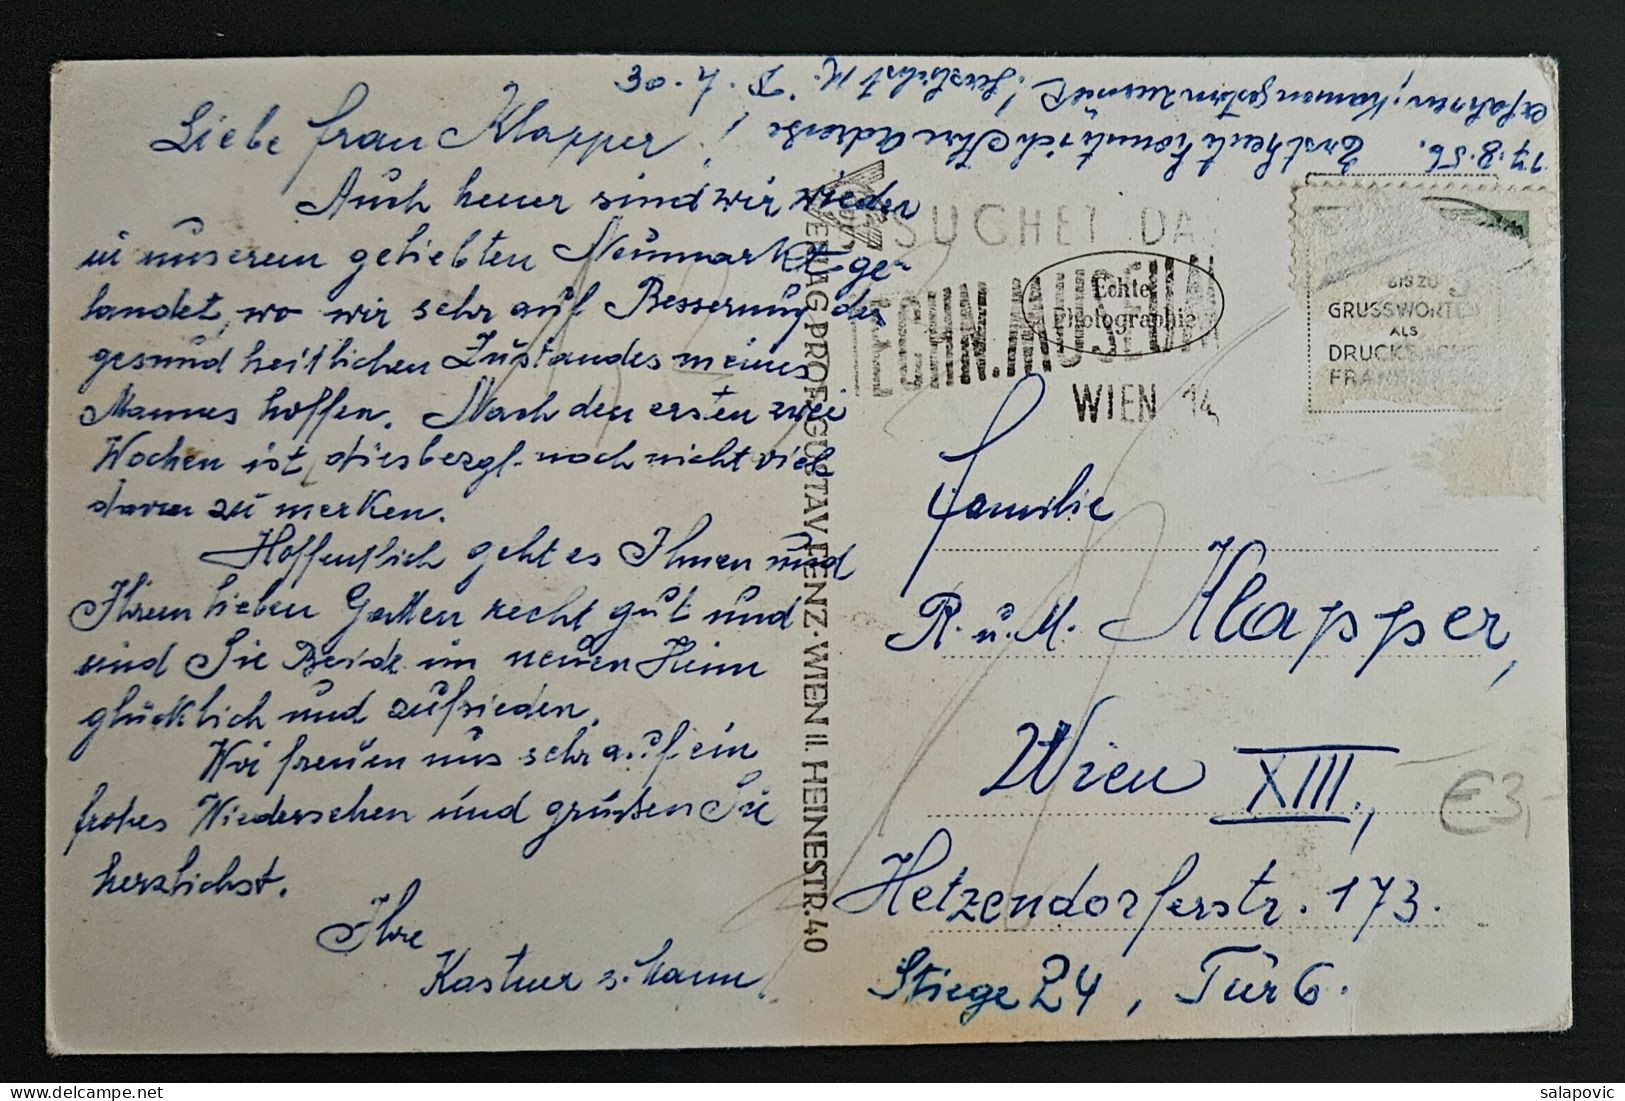 30. 7.
Liebe Frau Klapper!
Auch heuer sind wir wieder
in unserem geliebten Neumarkt ge-
landet, wo wir sehr auf Besserung des
gesundheitlichen Zustandes meines
Mannes hoffen. Nach den ersten zwei
Wochen ist diesbezgl. noch nicht viel
davon zu merken.
Hoffentlich geht es Ihnen und
Ihrem lieben Gatten recht gut und
sind Sie Beide im neuen Heim
glücklich und zufrieden.
Wir freuen uns sehr auf ein
frohes Wiedersehen und grüßen Sie
herzlichst.
Ihre
Kastner s. Mann
17.8.56. Erst heute konnte ich Ihre Adresse
erfahren, kamen gestern zurück! Herzlichst K.
VERLAG PROF. GUSTAV FENZ · WIEN II. HEINESTR. 40
BESUCHET DAS
TECHN. MUSEUM
WIEN 14
Echte
Photographie
BIS ZU
GRUSSWORTEN
ALS
DRUCKSACHE
Familie
R. u. M. Klapper,
Wien XIII.,
Hetzendorferstr. 173.
Stiege 24, Tür 6.
€3,-
salapovic